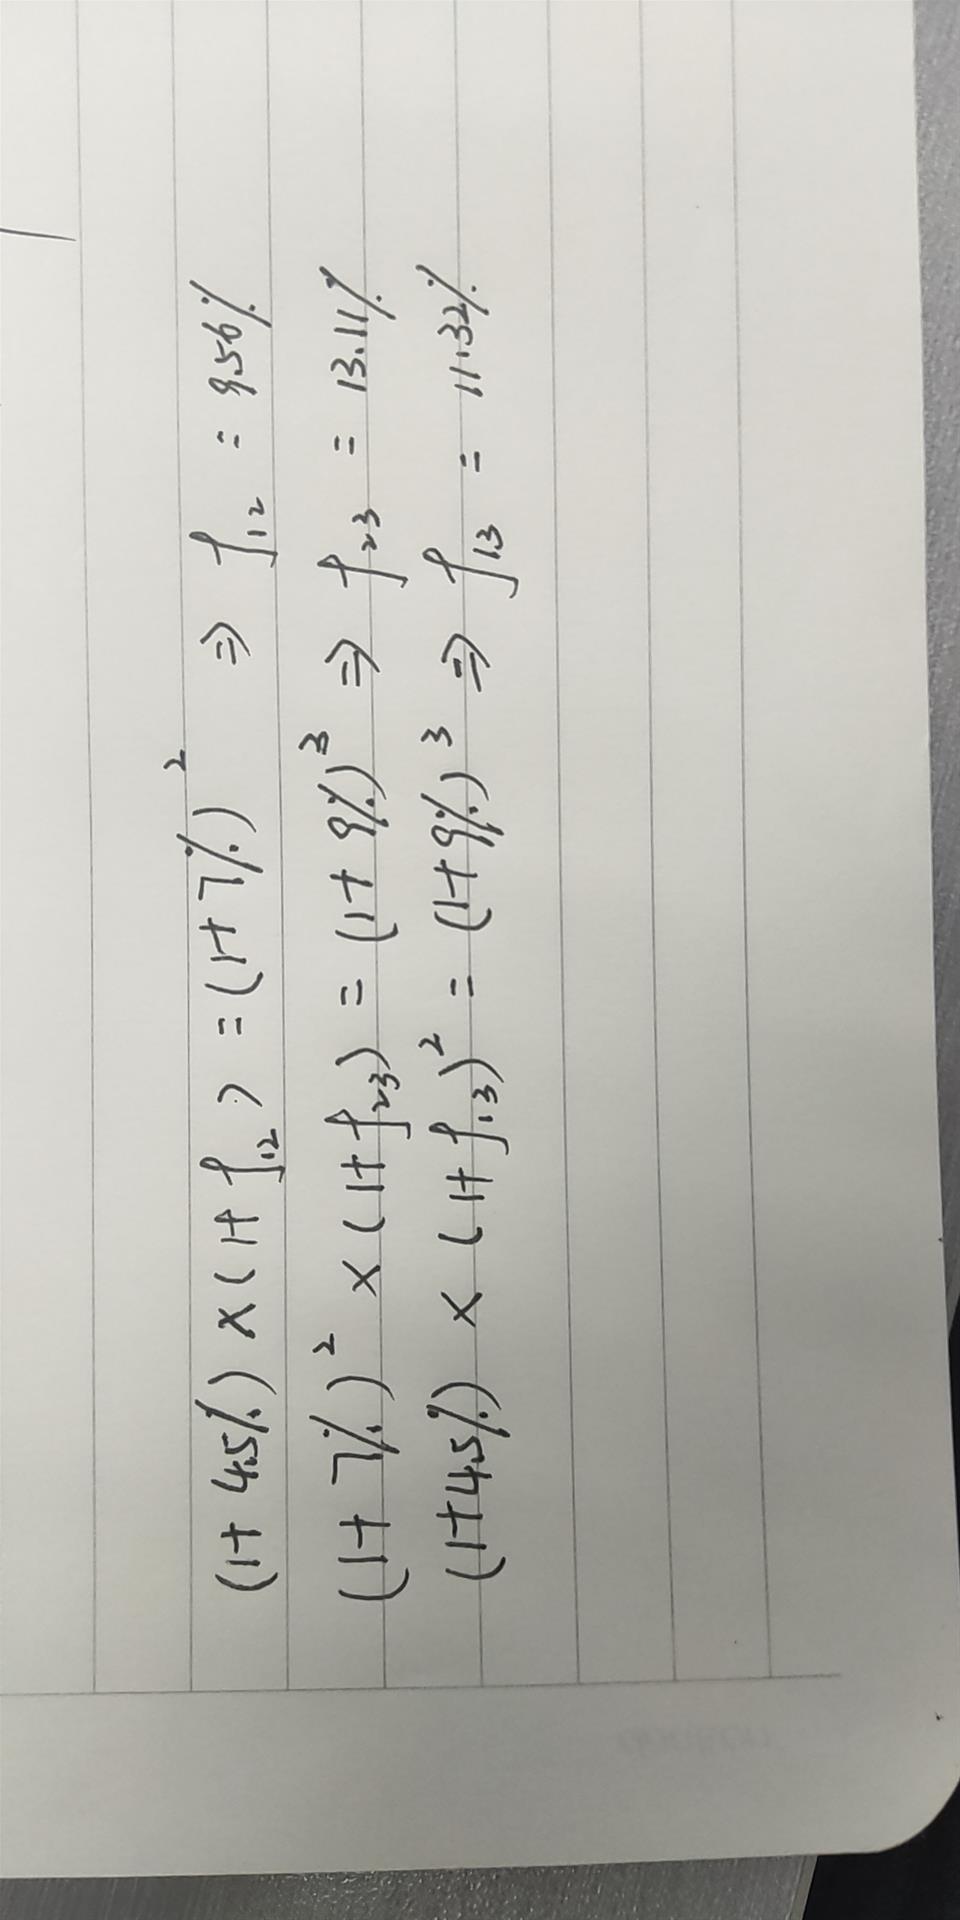 (1+4.5%)×(1+f₁₂)=(1+7%)² ⇒ f₁₂ = 9.56%
(1+7%)²×(1+f₂₃)=(1+9%)³ ⇒ f₂₃ = 13.11%
(1+4.5%)×(1+f₁₃)²=(1+9%)³ ⇒ f₁₃ = 11.32%